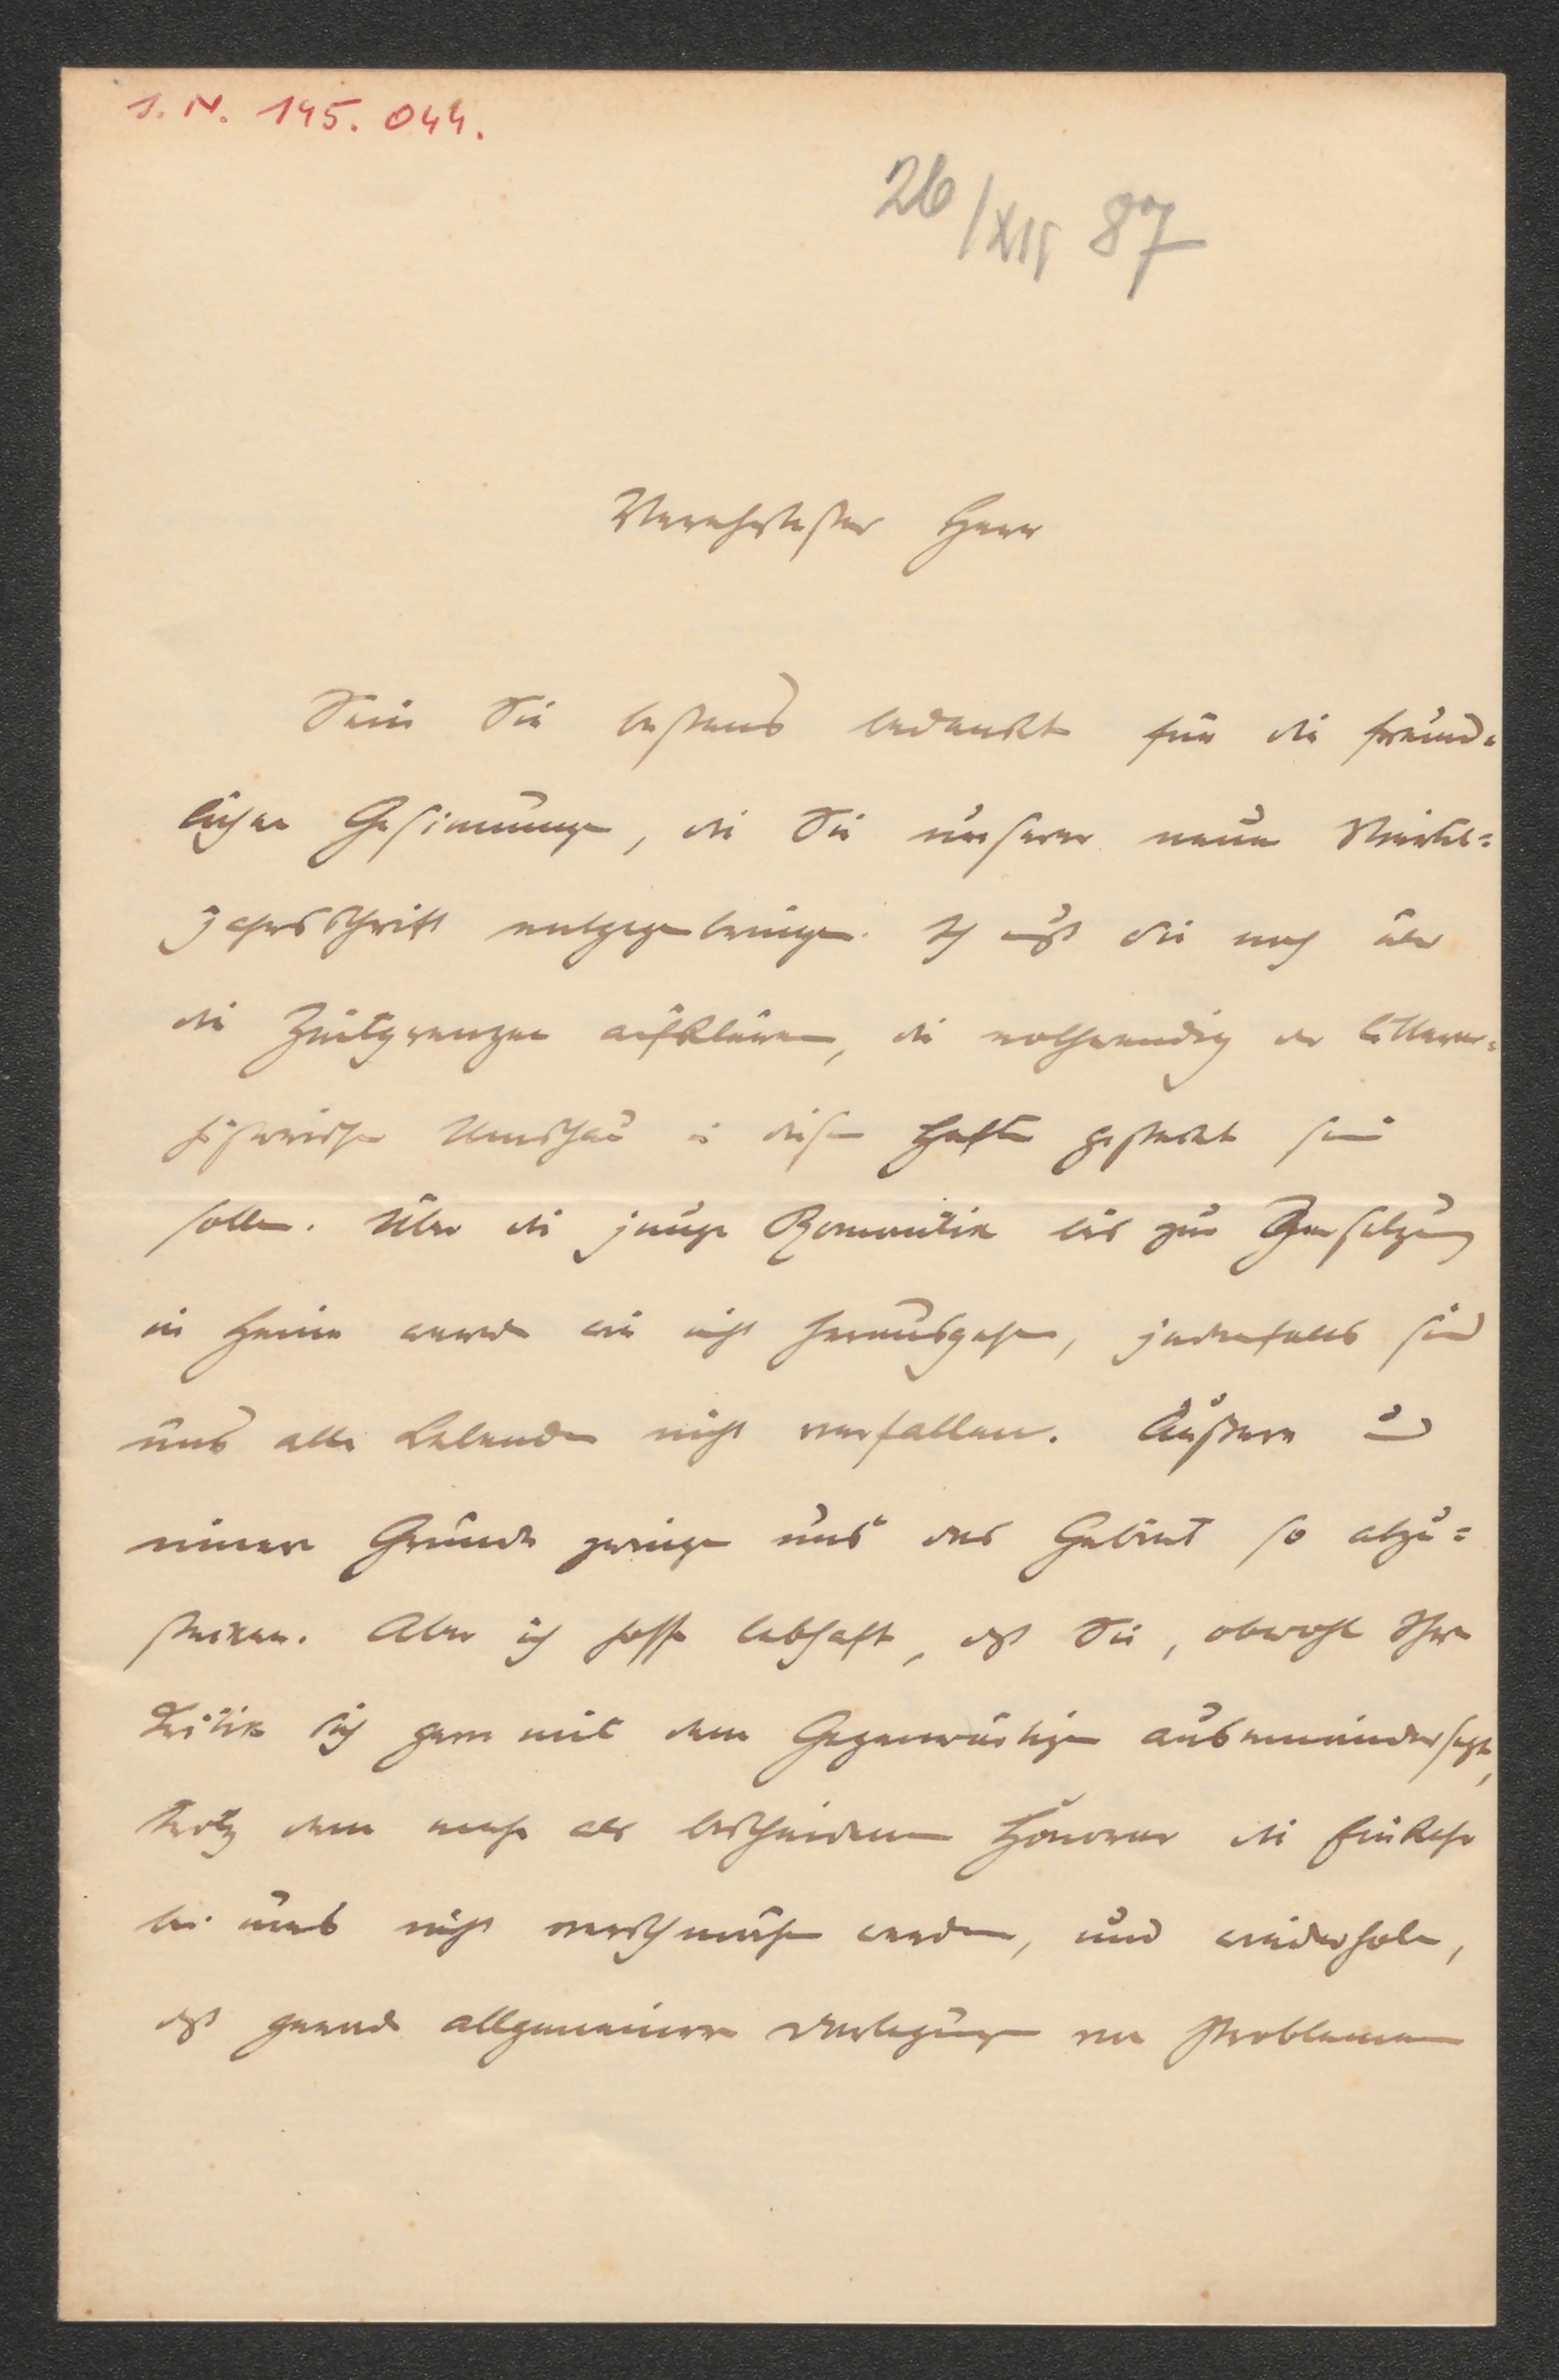 I. N. 145.044.
26/XII 87
Verehrtester Herr
Seien Sie bestens bedankt für die freund=
lichen Gesinnungen, die Sie unserer neuen Viertel=
jahrsschrift entgegenbringen. Ich muß Sie noch über
die Zeitgrenzen aufklären, die nothwendig der litterar=
historischen Umschau in diesen Heften gesteckt sein
sollen. Über die junge Romantik bis zur Zersetzung
in Heine werden wir nicht herausgehen, jedenfalls sind
uns alle Lebenden nicht verfallen. Äußere und
innere Gründe zwingen uns das Gebiet so abzu=
stecken. Aber ich hoffe lebhaft, daß Sie, obwohl Ihre
Kritik sich gern mit dem Gegenwärtigen auseinandersetzt,
trotz dem mehr als bescheidenen Honorar die Einkehr
bei uns nicht verschmähen werden, und wiederhole,
daß gerade allgemeinere Darlegungen von Problemen